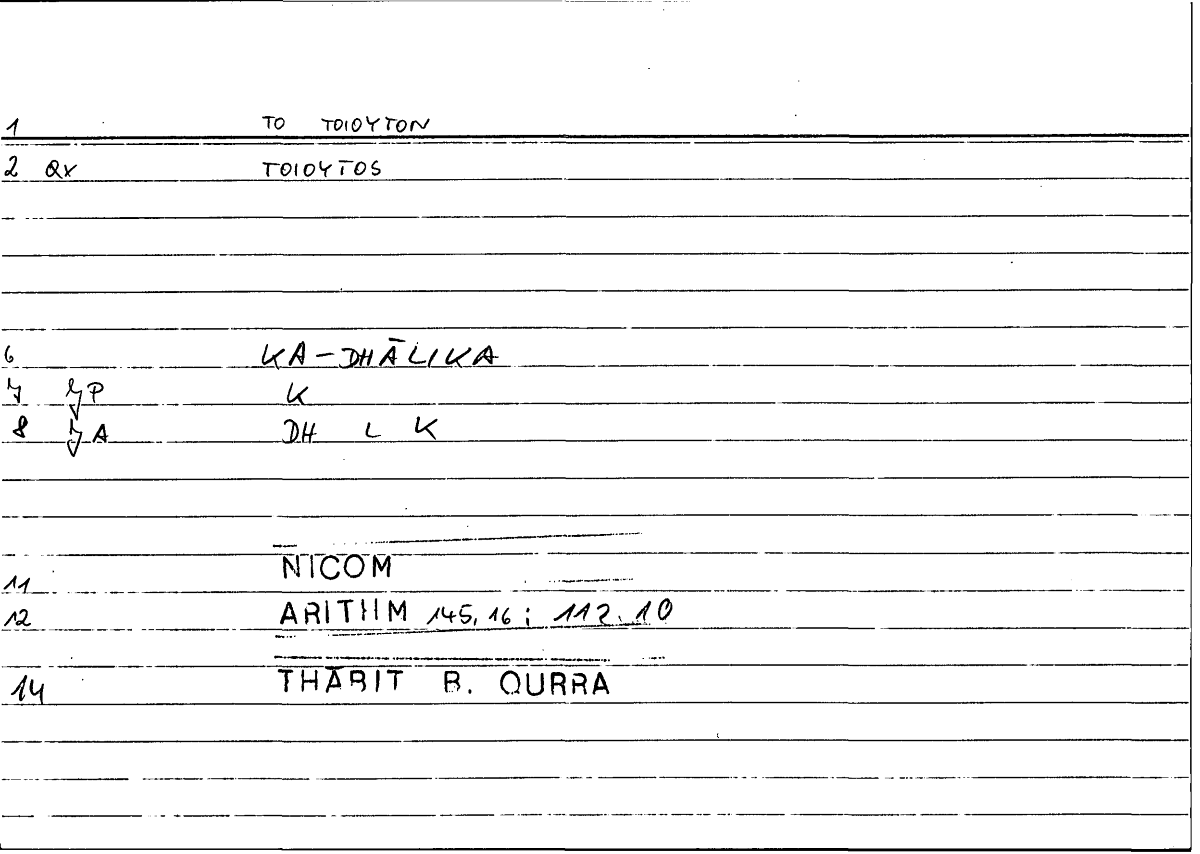 1 TO TOIOYTON
2 Qx TOIOYTOS
6 KA-DHĀLIKA
7 JP K
8 JA DH L K
11 NICOM
12 ARITHM 145,16; 112.10
14 THĀBIT B. QURRA